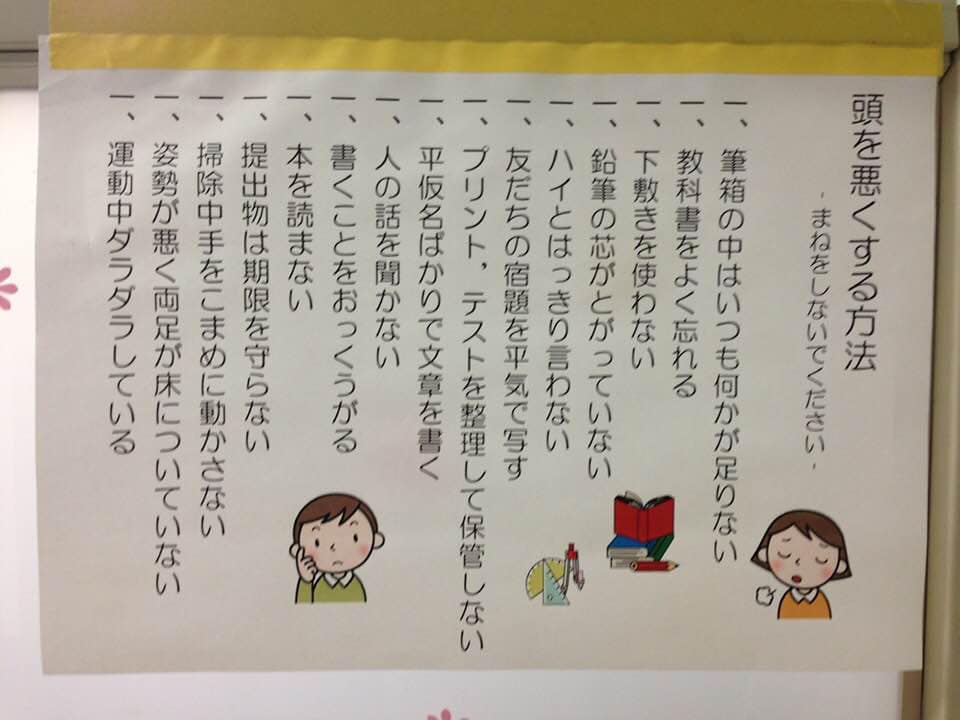 頭を悪くする方法
- まねをしないでください -
一、筆箱の中はいつも何かが足りない
一、教科書をよく忘れる
一、下敷きを使わない
一、鉛筆の芯がとがっていない
一、ハイとはっきり言わない
一、友だちの宿題を平気で写す
一、プリント，テストを整理して保管しない
一、平仮名ばかりで文章を書く
一、人の話を聞かない
一、書くことをおっくうがる
一、本を読まない
一、提出物は期限を守らない
一、掃除中手をこまめに動かさない
一、姿勢が悪く両足が床についていない
一、運動中ダラダラしている